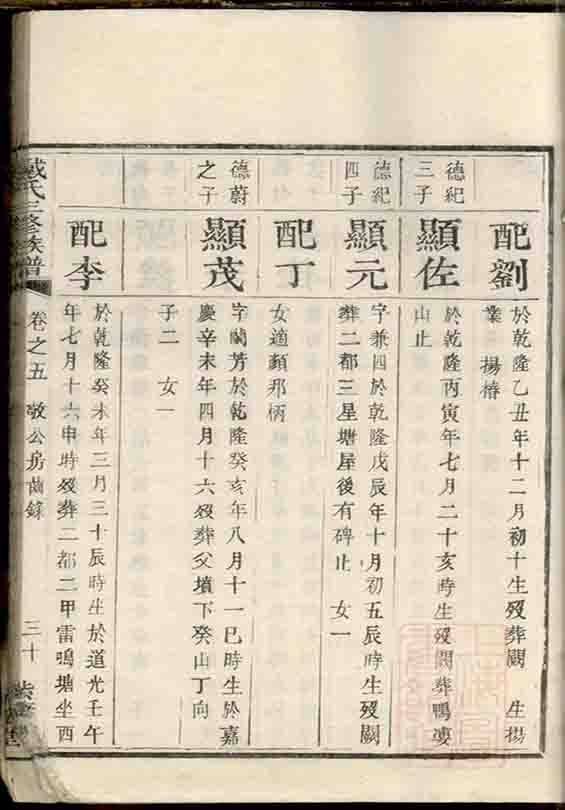 配劉
於乾隆乙丑年十二月初十生歿葬闕　生揚
業　揚椿
德紀
三子
顯佐
於乾隆丙寅年七月二十亥時生歿闕葬鴨婆
山止
德紀
四子
顯元
字兼四於乾隆戊辰年十月初五辰時生歿闕
葬二都三星塘屋後有碑止　女一
配丁
女適顏邢柄
德蔚
之子
顯茂
字蘭芳於乾隆癸亥年八月十一巳時生於嘉
慶辛未年四月十六歿葬父墳下癸山丁向
子二　女一
配李
於乾隆癸未年三月三十辰時生於道光壬午
年七月十六申時歿葬二都二甲雷鳴塘坐西
戴氏三修族譜
卷之五　敬公房齒錄
三十